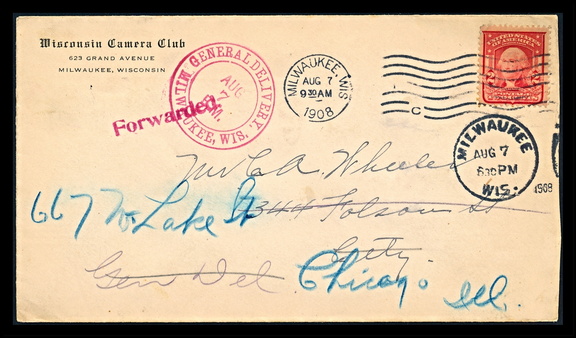 Wisconsin Camera Club
623 GRAND AVENUE
MILWAUKEE, WISCONSIN
MIL. GENERAL DELIVERY.
AUG
MILWAUKEE, WIS.
Forwarded.
MILWAUKEE, WIS.
AUG 7
930AM
1908
C
UNITED STATES
OF AMERICA
MILWAUKEE
AUG 7
630PM
WIS.
1908
Mr C. A. Wheeler
344 Folsom St
City.
667 W. Lake St
Gen Del
Chicago Ill.